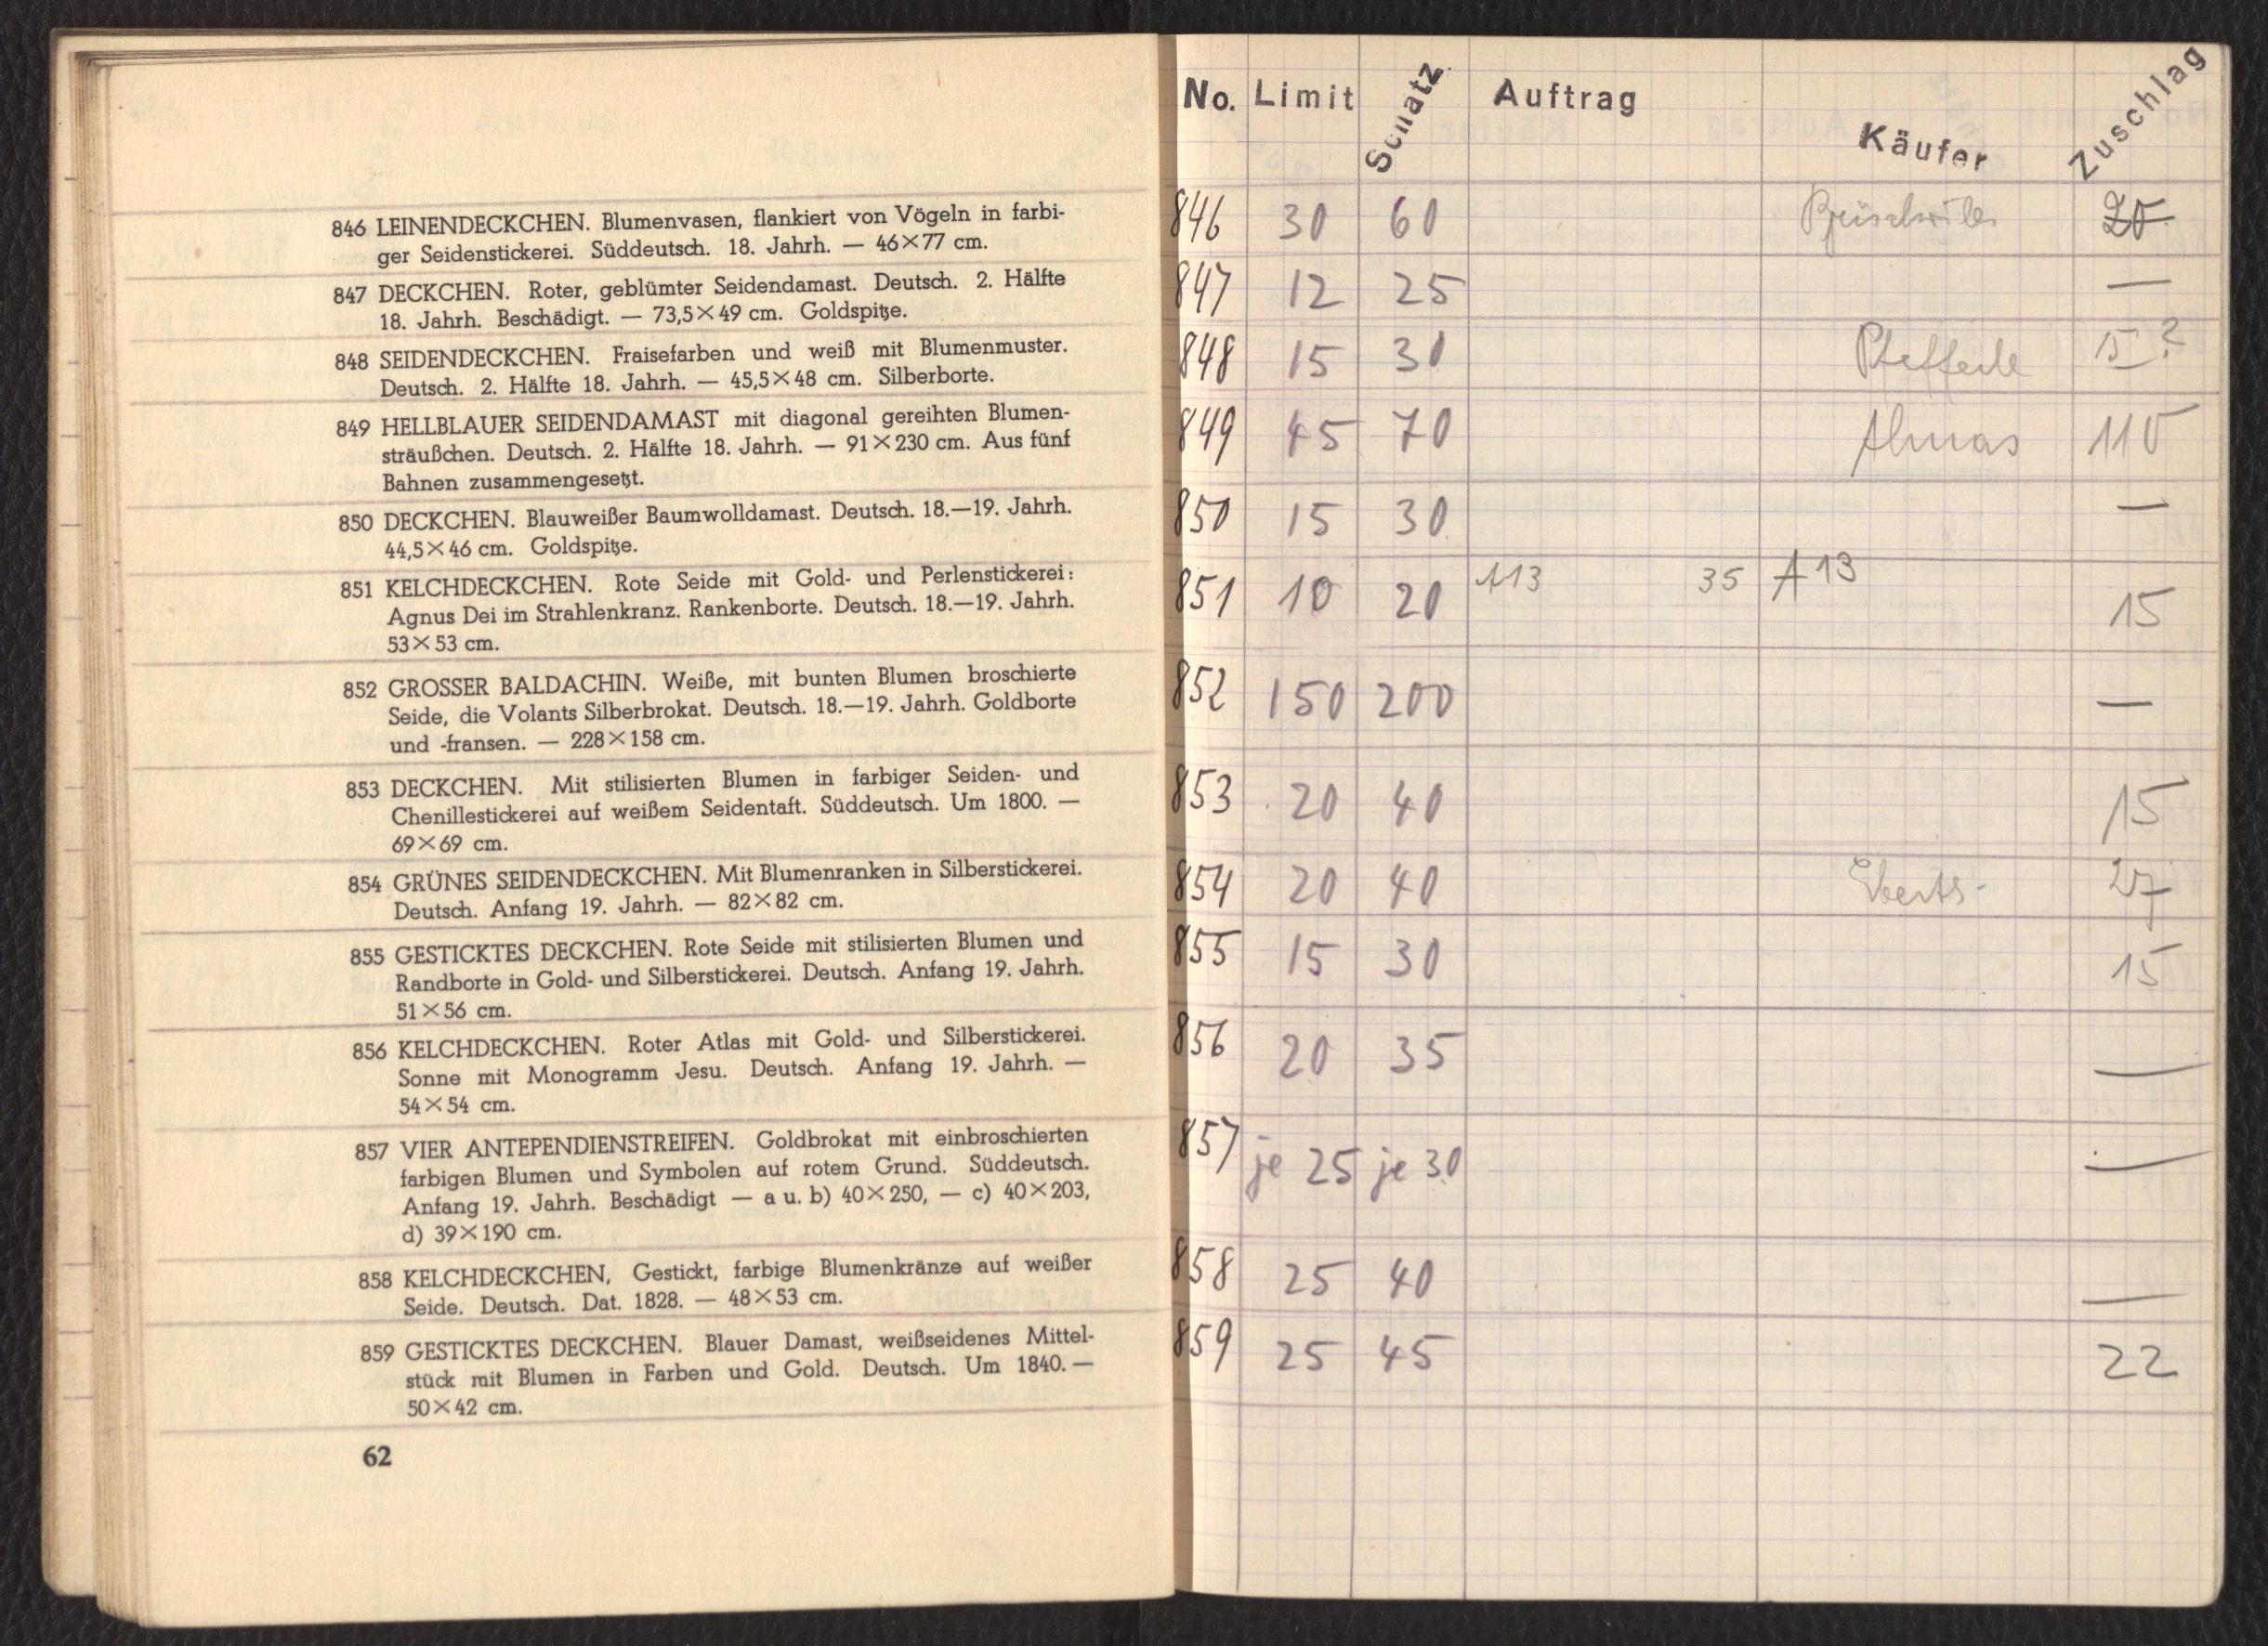 846 LEINENDECKCHEN. Blumenvasen, flankiert von Vögeln in farbi-
ger Seidenstickerei. Süddeutsch. 18. Jahrh. — 46×77 cm.
847 DECKCHEN. Roter, geblümter Seidendamast. Deutsch. 2. Hälfte
18. Jahrh. Beschädigt. — 73,5×49 cm. Goldspitze.
848 SEIDENDECKCHEN. Fraisefarben und weiß mit Blumenmuster.
Deutsch. 2. Hälfte 18. Jahrh. — 45,5×48 cm. Silberborte.
849 HELLBLAUER SEIDENDAMAST mit diagonal gereihten Blumen-
sträußchen. Deutsch. 2. Hälfte 18. Jahrh. — 91×230 cm. Aus fünf
Bahnen zusammengesetzt.
850 DECKCHEN. Blauweißer Baumwolldamast. Deutsch. 18.—19. Jahrh.
44,5×46 cm. Goldspitze.
851 KELCHDECKCHEN. Rote Seide mit Gold- und Perlenstickerei:
Agnus Dei im Strahlenkranz. Rankenborte. Deutsch. 18.—19. Jahrh.
53×53 cm.
852 GROSSER BALDACHIN. Weiße, mit bunten Blumen broschierte
Seide, die Volants Silberbrokat. Deutsch. 18.—19. Jahrh. Goldborte
und -fransen. — 228×158 cm.
853 DECKCHEN. Mit stilisierten Blumen in farbiger Seiden- und
Chenillestickerei auf weißem Seidentaft. Süddeutsch. Um 1800. —
69×69 cm.
854 GRÜNES SEIDENDECKCHEN. Mit Blumenranken in Silberstickerei.
Deutsch. Anfang 19. Jahrh. — 82×82 cm.
855 GESTICKTES DECKCHEN. Rote Seide mit stilisierten Blumen und
Randborte in Gold- und Silberstickerei. Deutsch. Anfang 19. Jahrh.
51×56 cm.
856 KELCHDECKCHEN. Roter Atlas mit Gold- und Silberstickerei.
Sonne mit Monogramm Jesu. Deutsch. Anfang 19. Jahrh. —
54×54 cm.
857 VIER ANTEPENDIENSTREIFEN. Goldbrokat mit einbroschierten
farbigen Blumen und Symbolen auf rotem Grund. Süddeutsch.
Anfang 19. Jahrh. Beschädigt — a u. b) 40×250, — c) 40×203,
d) 39×190 cm.
858 KELCHDECKCHEN, Gestickt, farbige Blumenkränze auf weißer
Seide. Deutsch. Dat. 1828. — 48×53 cm.
859 GESTICKTES DECKCHEN. Blauer Damast, weißseidenes Mittel-
stück mit Blumen in Farben und Gold. Deutsch. Um 1840. —
50×42 cm.
62
No. Limit Schatz. Auftrag Käufer Zuschlag
846 30 60
847 12 25 —
848 15 30 15 ?
849 45 70 Almas 110
850 15 30 —
851 10 20 A13 35 A13 15
852 150 200 —
853 20 40 15
854 20 40 Eberts 27
855 15 30 15
856 20 35 —
857 je 25 je 30 —
858 25 40 —
859 25 45 22